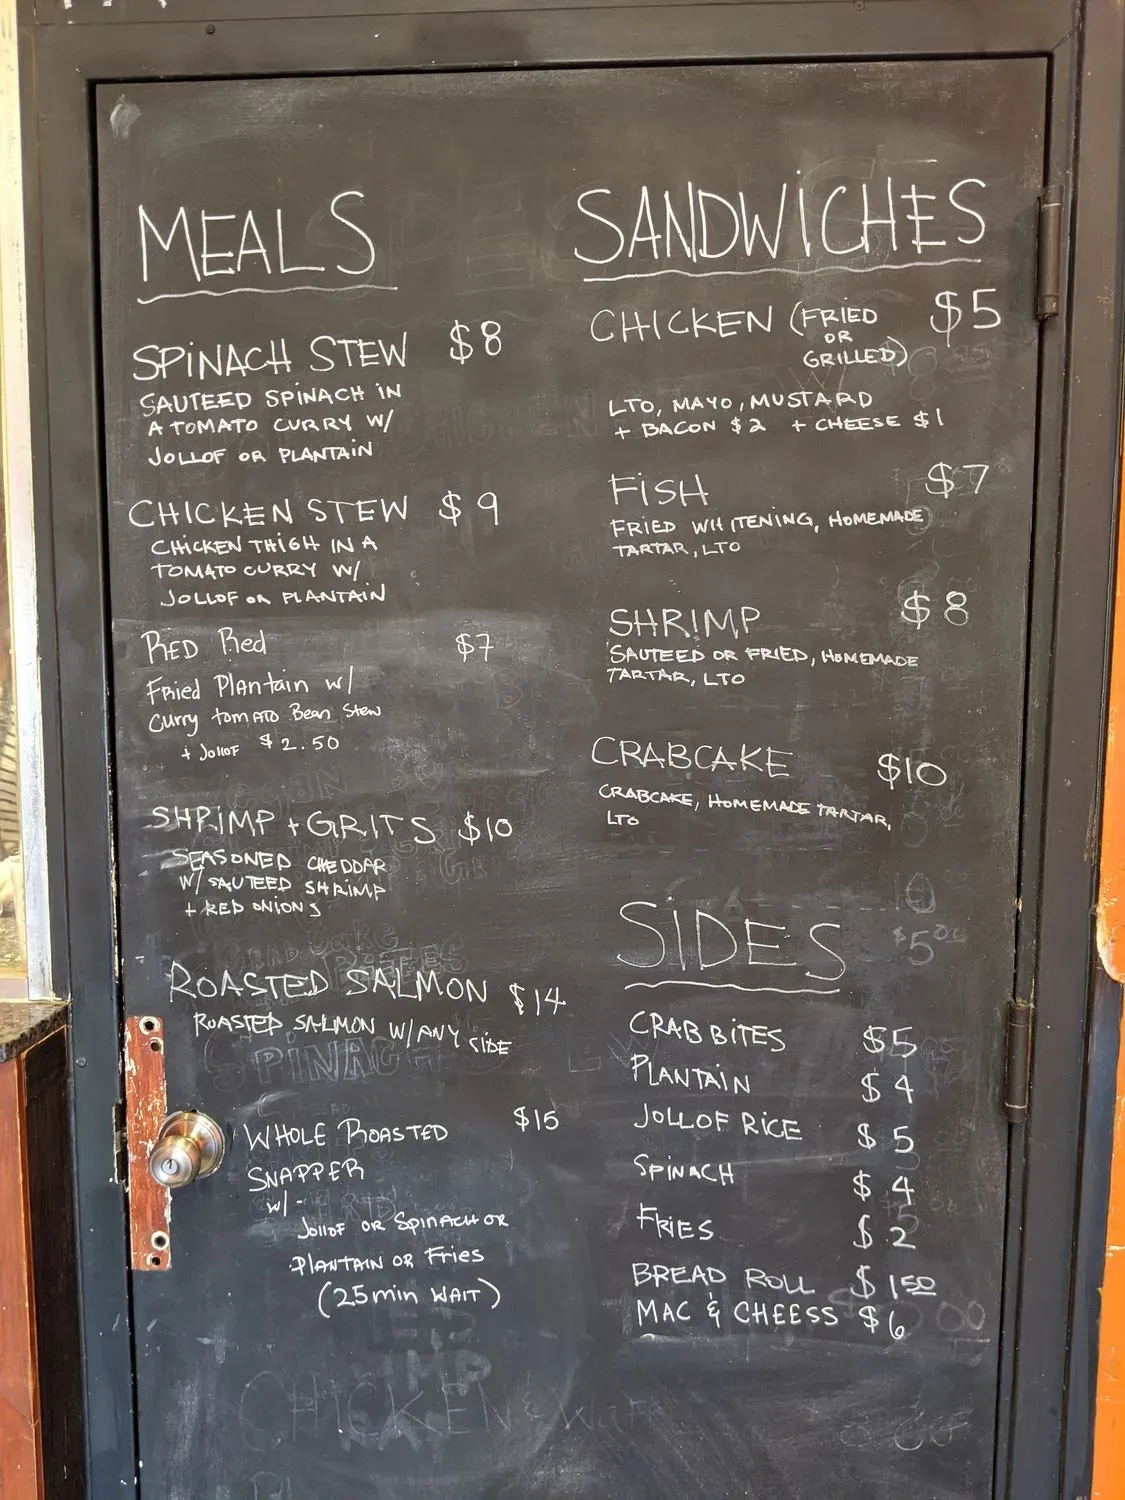 MEALS
SPINACH STEW $8
SAUTEED SPINACH IN
A TOMATO CURRY W/
JOLLOF OR PLANTAIN
CHICKEN STEW $9
CHICKEN THIGH IN A
TOMATO CURRY W/
JOLLOF OR PLANTAIN
RED Red $7
Fried Plantain w/
Curry tomATO Bean Stew
+ Jollof $2.50
SHRIMP + GRITS $10
SEASONED CHEDDAR
W/ SAUTEED SHRIMP
+ RED ONIONS
ROASTED SALMON $14
ROASTED SALMON W/ANY SIDE
WHOLE ROASTED $15
SNAPPER
w/-
Jollof OR SPINACH OR
PLANTAIN OR Fries
(25min WAIT)
SANDWICHES
CHICKEN (FRIED $5
OR
GRILLED)
LTO, MAYO, MUSTARD
+ BACON $2 + CHEESE $1
FISH $7
FRIED WHITENING, HOMEMADE
TARTAR, LTO
SHRIMP $8
SAUTEED OR FRIED, HOMEMADE
TARTAR, LTO
CRABCAKE $10
CRABCAKE, HOMEMADE TARTAR,
LTO
SIDES
$5.00
CRAB BITES $5
PLANTAIN $4
JOLLOF RICE $5
SPINACH $4
FRIES $2
BREAD ROLL $1.50
MAC & CHEESS $6
CHICKEN &